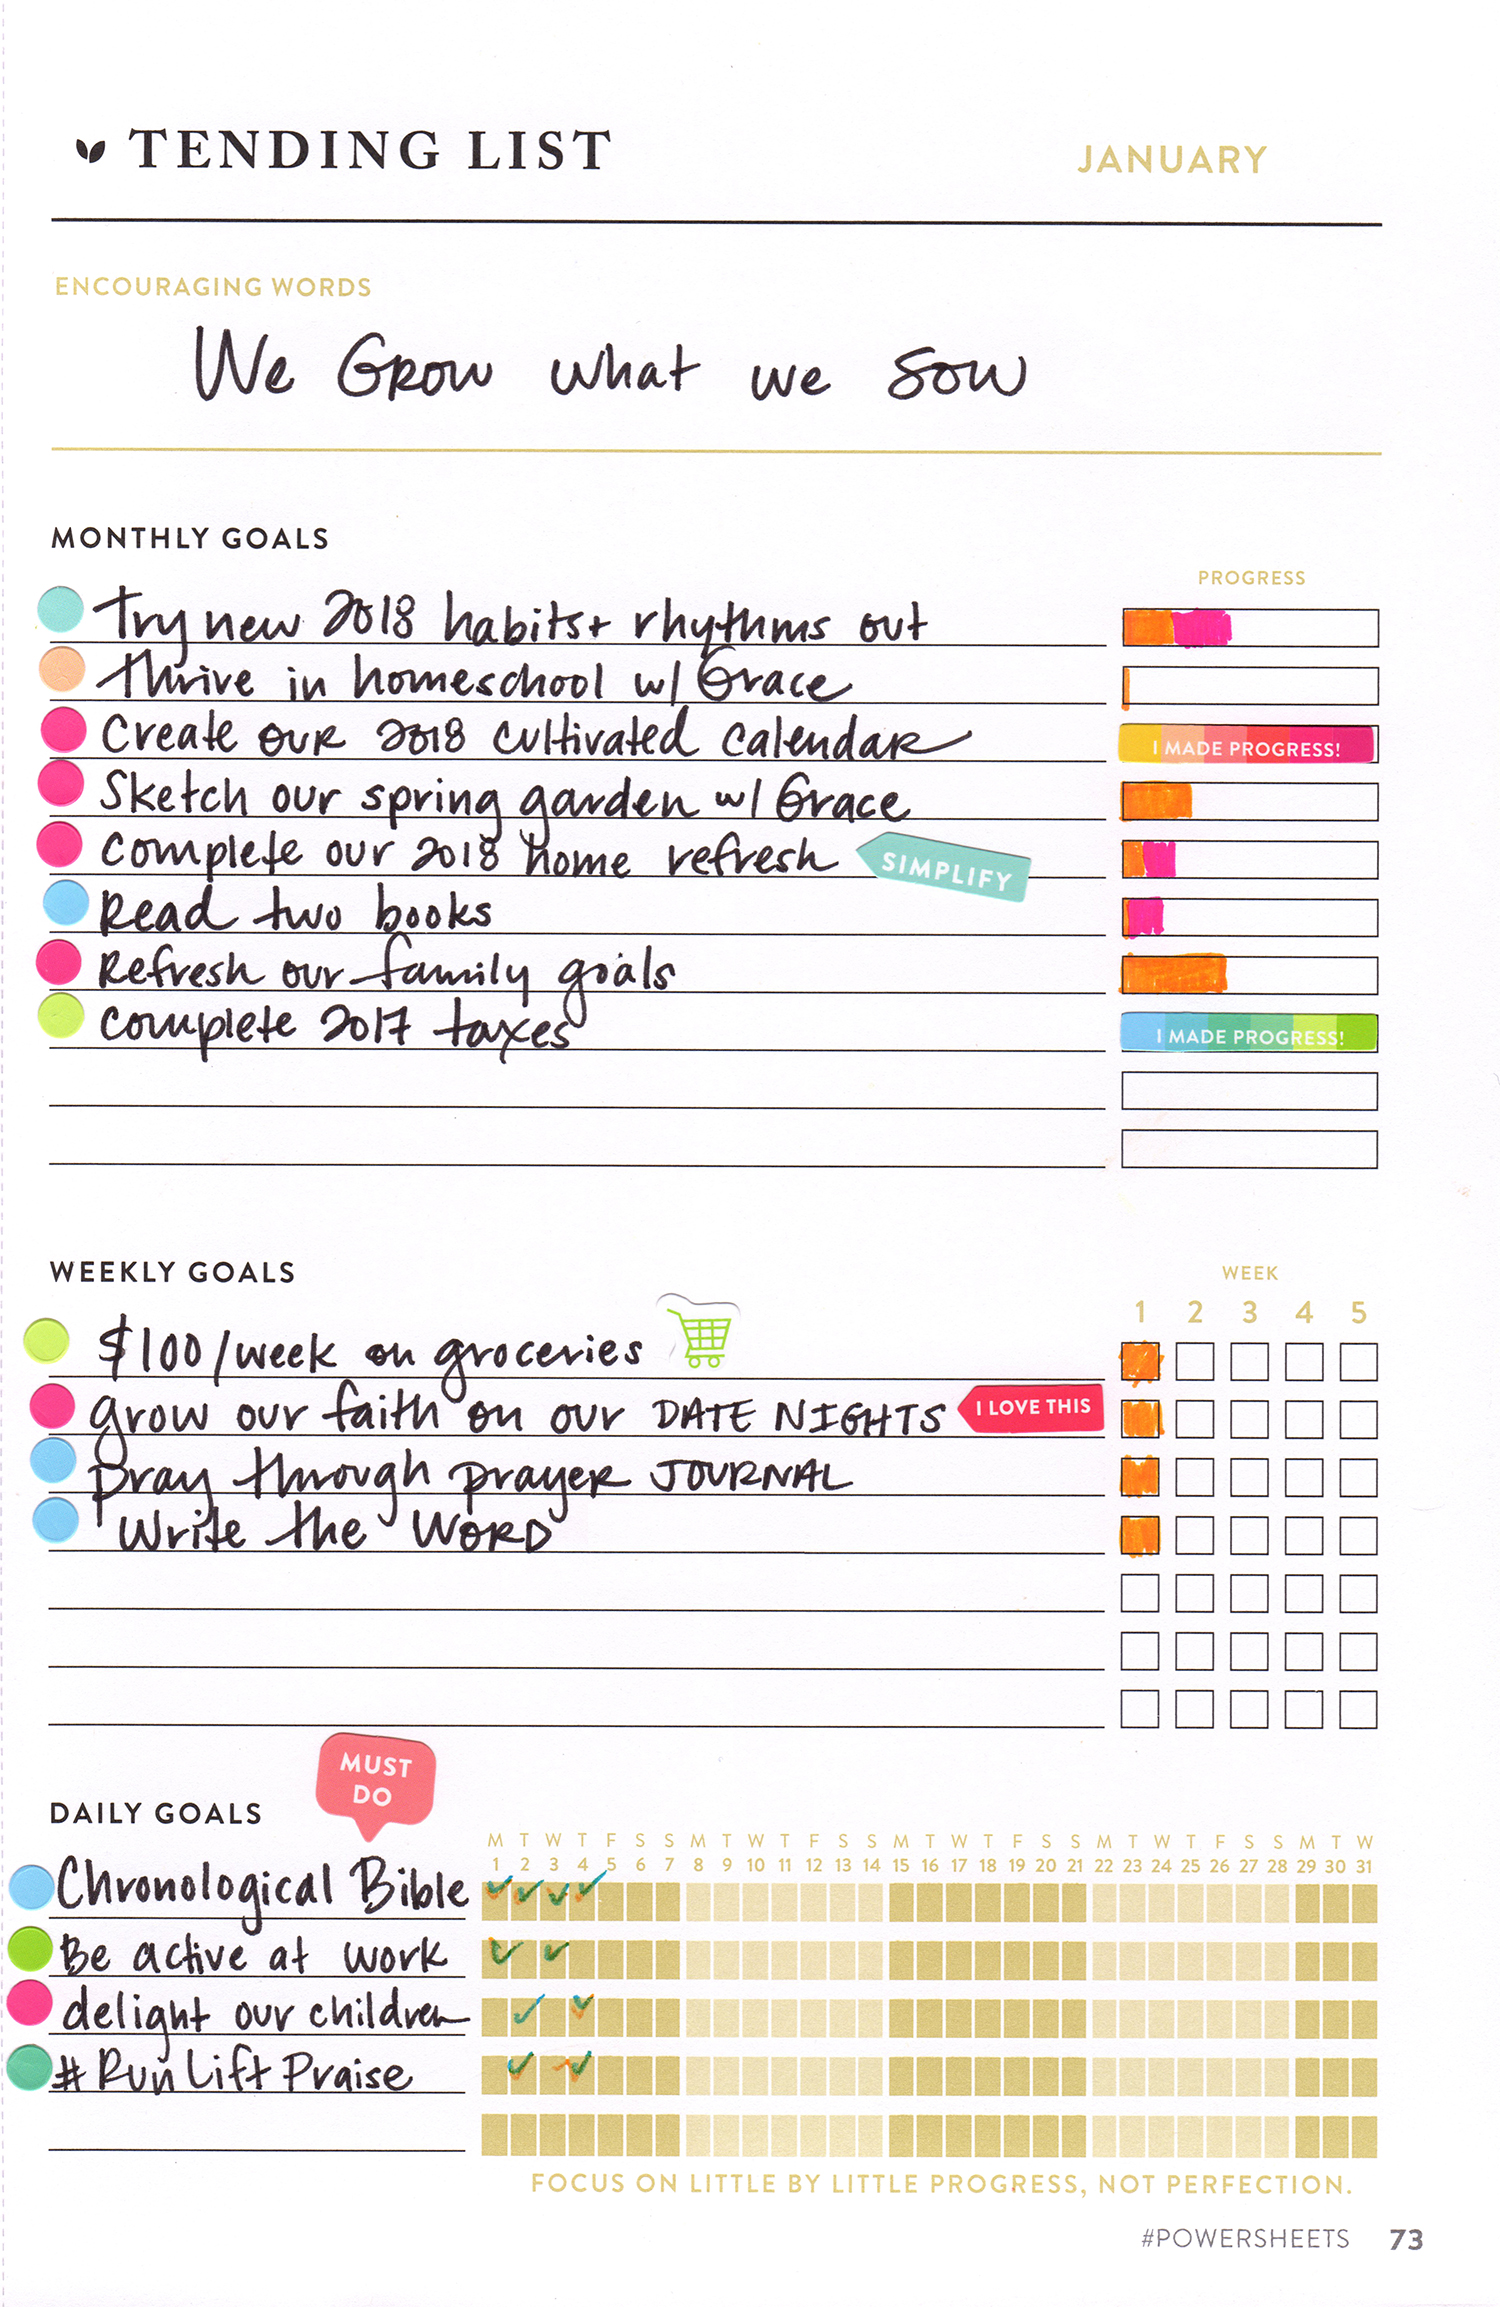 TENDING LIST
JANUARY
ENCOURAGING WORDS
We Grow what we sow
MONTHLY GOALS
PROGRESS
Try new 2018 habits + rhythms out
thrive in homeschool w/ Grace
Create our 2018 cultivated calendar
I MADE PROGRESS!
Sketch our spring garden w/ Grace
Complete our 2018 home refresh
SIMPLIFY
Read two books
Refresh our family goals
Complete 2017 taxes
I MADE PROGRESS!
WEEKLY GOALS
WEEK
1 2 3 4 5
$100/week on groceries
grow our faith on our DATE NIGHTS
I LOVE THIS
pray through prayer JOURNAL
Write the WORD
MUST
DO
DAILY GOALS
M T W T F S S M T W T F S S M T W T F S S M T W T F S S M T W
1 2 3 4 5 6 7 8 9 10 11 12 13 14 15 16 17 18 19 20 21 22 23 24 25 26 27 28 29 30 31
Chronological Bible
Be active at work
delight our children
#RunLiftPraise
FOCUS ON LITTLE BY LITTLE PROGRESS, NOT PERFECTION.
#POWERSHEETS 73